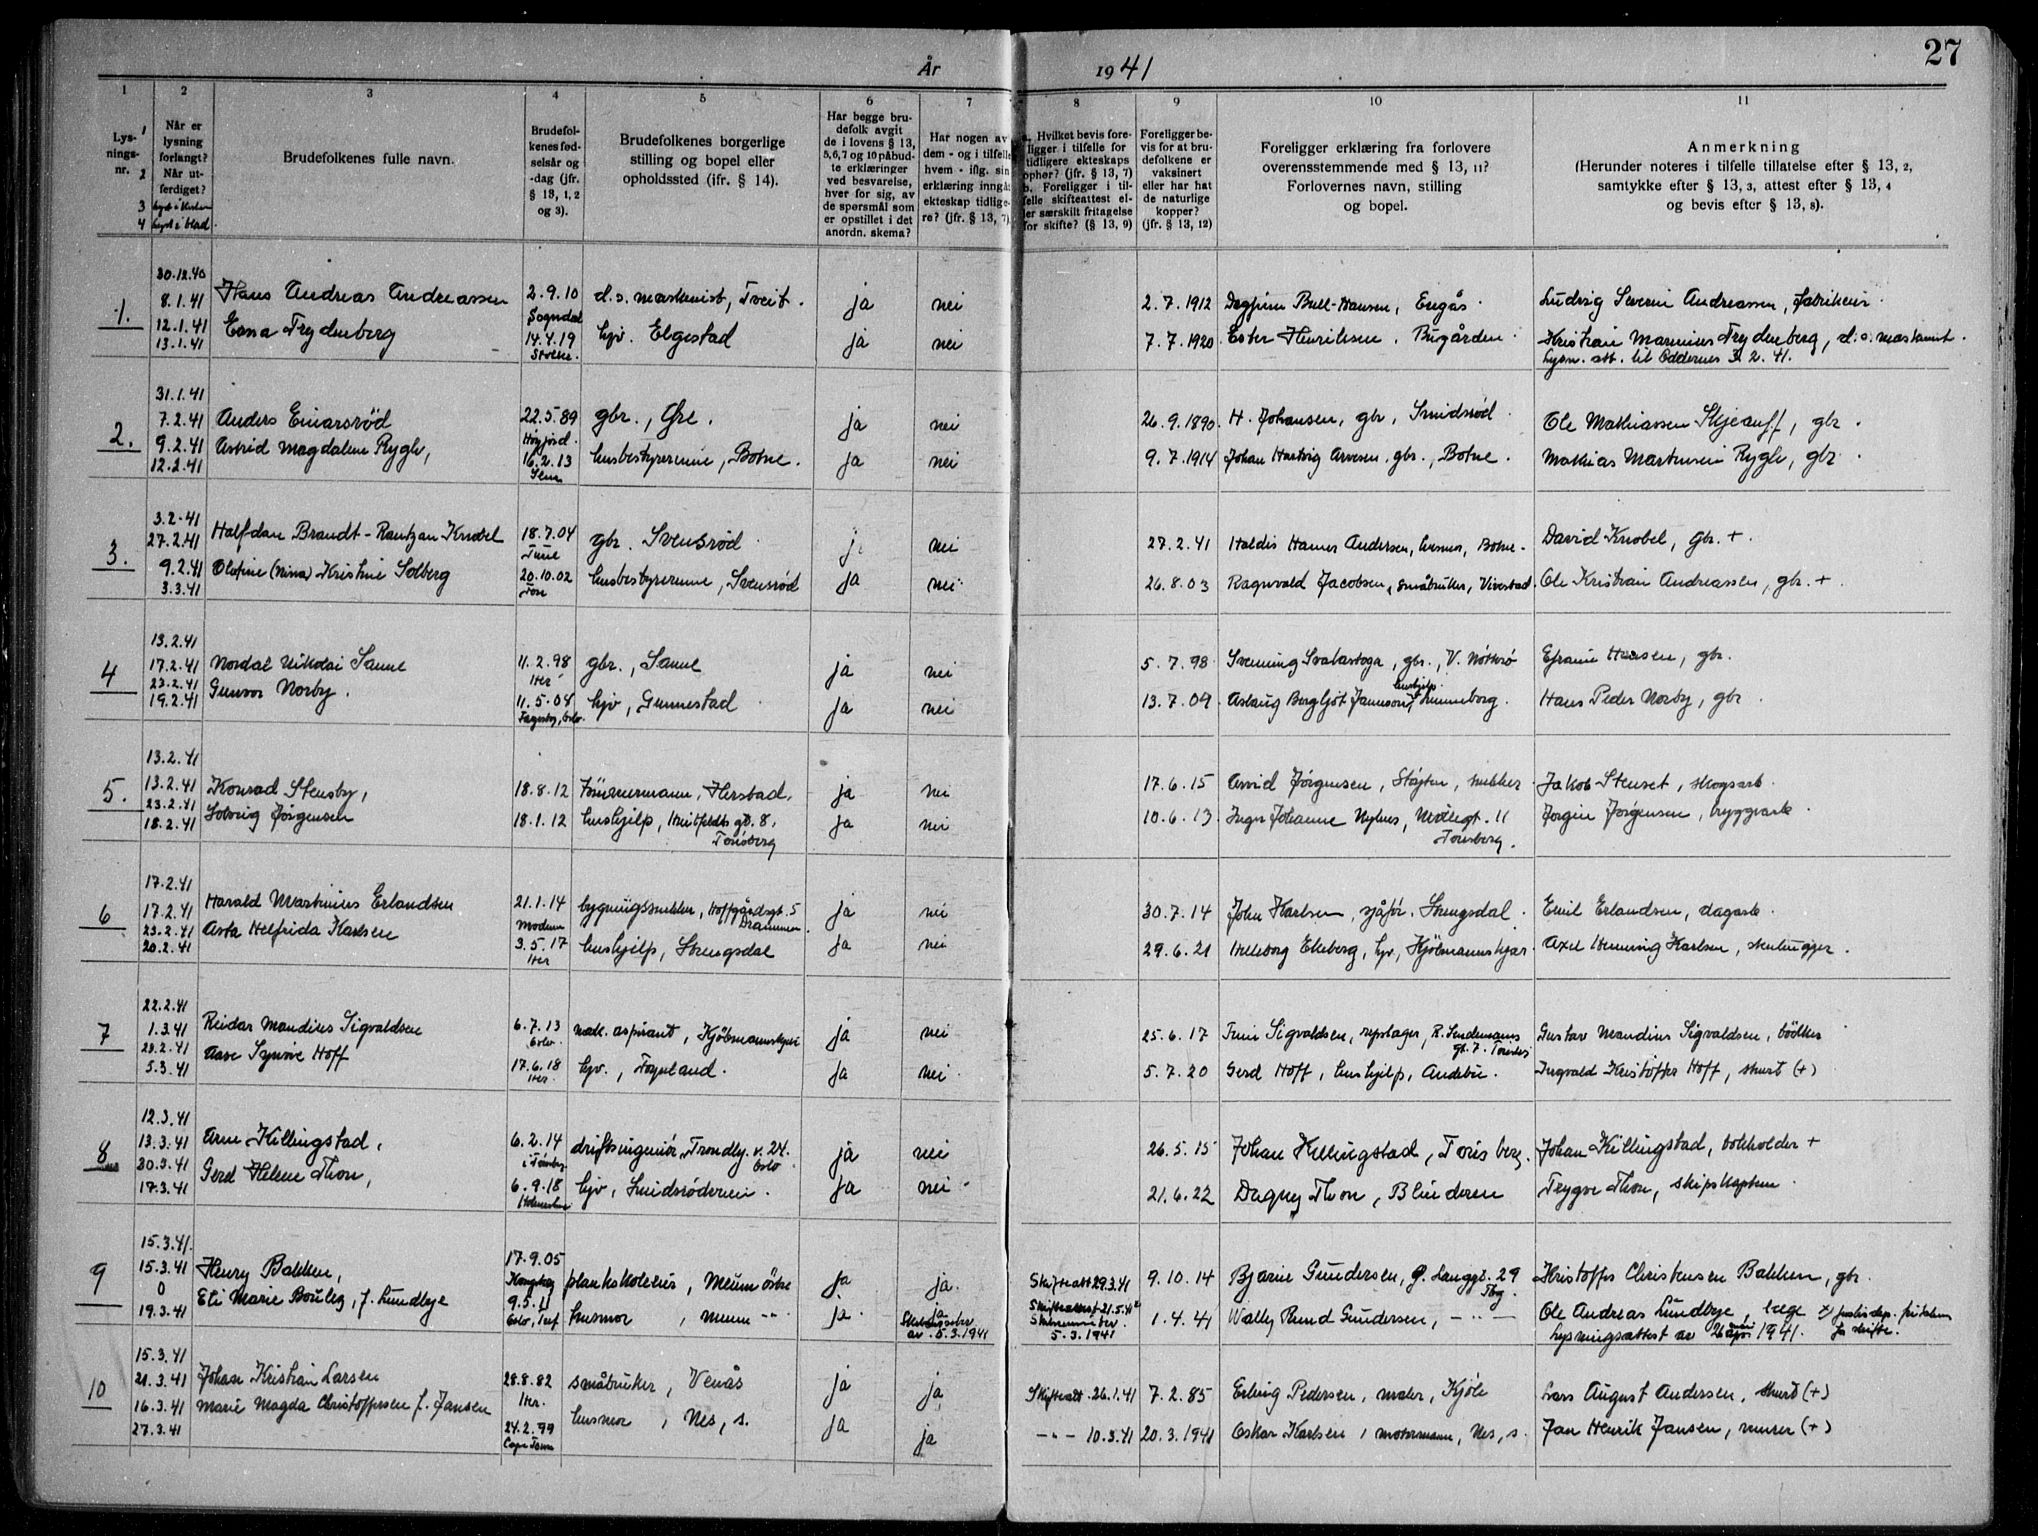 27
År 1941
1 2 3 4 5 6 7 8 9 10 11
Lysnings-nr.
1
2
3
4
Når er lysning forlangt? Når utferdiget?
lyst i kirken
lyst i blad
Brudefolkenes fulle navn.
Brudefolkenes fødselsår og -dag (jfr. § 13, 1, 2 og 3).
Brudefolkenes borgerlige stilling og bopel eller opholdssted (ifr. § 14).
Har begge brudefolk avgit de i lovens § 13, 5,6,7 og 10 påbudte erklæringer ved besvarelse, hver for sig, av de spørsmål som er opstillet i det anordn. skema?
Har nogen av dem - og i tilfelle hvem - iflg. sin erklæring inngått ekteskap tidligere? (jfr. § 13, 7)
a. Hvilket bevis foreligger i tilfelle for tidligere ekteskaps ophør? (jfr. § 13, 7)
b. Foreligger i tilfelle skifteattest eller særskilt fritagelse for skifte? (§ 13, 9)
Foreligger bevis for at brudefolkene er vaksinert eller har hat de naturlige kopper? (jfr. § 13, 12)
Foreligger erklæring fra forlovere overensstemmende med § 13, 11? Forlovernes navn, stilling og bopel.
Anmerkning
(Herunder noteres i tilfelle tillatelse efter § 13, 2, samtykke efter § 13, 3, attest efter § 13, 4 og bevis efter § 13, 8).
1.
30.12.40
8.1.41
12.1.41
13.1.41
Hans Andreas Andreassen 2.9.10 Sogndal d.s. maskinist, Tveit. ja nei 2.7.1912 Dagfinn Bull-Hansen, Engås. Ludvig Severin Andreassen, fabrikeier.
Erna Frydenberg 14.4.19 Stokke. hjv. Elgestad ja nei 7.7.1920 Ester Henriksen, Bugården. Kristian Marinius Frydenberg, d.s. maskinist.
Lysn. att. til Oddernes 3.2.41.
2.
31.1.41
7.2.41
9.2.41
12.2.41
Anders Einarsrød 22.5.89 Høyjord. gbr., Øre. ja nei 26.9.1890 H. Johansen, gbr, Smidsrød. Ole Mathiassen Skjeauff, gbr.
Astrid Magdalene Rygh, 16.2.13 Sem husbestyrerinne, Botne. ja nei 9.7.1914 Johan Hartvig Arvesen, gbr., Botne. Mathias Martinsen Rygh, gbr.
3.
3.2.41
27.2.41
9.2.41
3.3.41
Halfdan Brandt-Rantzau Knobel 18.7.04 Tune gbr. Svensrød ja nei 27.2.41 Haldis Hamer Andersen, husmor, Botne. David Knobel, gbr. +
Olefine (Nina) Kristine Solberg 20.10.02 husbestyrerinne, Svensrød ja nei 26.8.03 Ragnvald Jacobsen, småbruker, Viverstad. Ole Kristian Andreassen, gbr. +
4
13.2.41
17.2.41
23.2.41
19.2.41
Nordal Nikolai Sanne 11.2.98 Her gbr., Sanne ja nei 5.7.98 Svenning Svalastoga, gbr., V. Nøtterø Efraim Hansen, gbr.
Gunvor Norby. 11.5.04 hjv, Gunnestad ja nei 13.7.09 Aslaug Bergljot Jannsson, hushjelp. Hans Peder Norby, gbr.
5.
13.2.41
13.2.41
23.2.41
18.2.41
Konrad Stensby, 18.8.12 tømmermann, Herstad. ja nei 17.6.15 Arvid Jørgensen, snekker Jakob Stenset, skogsarb.
Solveig Jørgensen 18.1.12 hushjelp, Huitfeldts gt. 8, Tønsberg ja nei 10.6.13 Inger Johanne Nyhus, 11 Tønsberg. Jørgin Jørgensen, bryggearb.
6
17.2.41
17.2.41
23.2.41
20.2.41
Harald Martinius Erlandsen 21.1.14 Modum bygningssnekker, Hoffgårdsgt. 5 Drammen. ja nei 30.7.14 John Karlsen, sjåfør. Strengsdal. Emil Erlandsen, dagarb.
Asta Helfrida Karlsen 3.5.17 Her hushjelp, Strengsdal ja nei 29.6.21 Ekeberg, hjv, Kjøbmannskjær Axel Henning Karlsen, stenhugger.
7
22.2.41
1.3.41
23.2.41
5.3.41
Reidar Mandius Sigvaldsen 6.7.13 Oslo. aspirant, Kjøbmannskjær ja nei 25.6.17 Sigvaldsen, Gustav Mandius Sigvaldsen, bødker
Aase Synnøve Hoff 17.6.18 Her. hjv., Føynland. ja nei. 5.7.20 Gerd Hoff, hushjelp, Andebu. Ingvald Kristoffer Hoff, skurt (+)
8
12.3.41
13.3.41
30.3.41
17.3.41
Arne Killingstad, 6.2.14 i Tønsberg driftsingeniør, v. 24. Oslo ja nei 26.5.15 Johan Killingstad, Tønsberg. Johan Killingstad, bokholder +
Gerd Helene Thon, 6.9.18 Holmestrand hjv, Smidsrødveien. ja nei. 21.6.22 Dagny Thon, Blinderen Trygve Thon, skipskaptein.
9
15.3.41.
15.3.41
0
19.3.41
Henry Bakken, 17.9.05 Kongsberg planhskolleier, Meum østre ja ja. Skifteatt 29.3.41 9.10.14 Bjarne Gundersen, G. Langgt. 29 Tbg. Kristoffer Christensen Bakken, gbr.
Eli Marie f. Lundbye 9.5.11 husmor, Meum -"- ja. ja av 5.3.1941 5.3.1941 1.4.41 Wally Rund Gundersen, -"- Ole Andreas Lundbye, læge
Lysningsattest av 26 mai 1941. for skifte.
10
15.3.41
21.3.41
16.3.41
27.3.41
Johan Kristian Larsen 28.8.82 Her. småbruker, Venås ja ja Skifteatt. 26.1.41 7.2.85 Erling Pedersen, maler, Kjøle Lars August Andersen, skurt (+)
Marie Magda Christoffersen f. Jansen 24.2.99 Cape Town husmor, Nes, s. ja ja -"- 10.3.41 20.3.1941 Oskar Karlsen, motormann, Nes, s. Jan Henrik Jansen, murer (+)